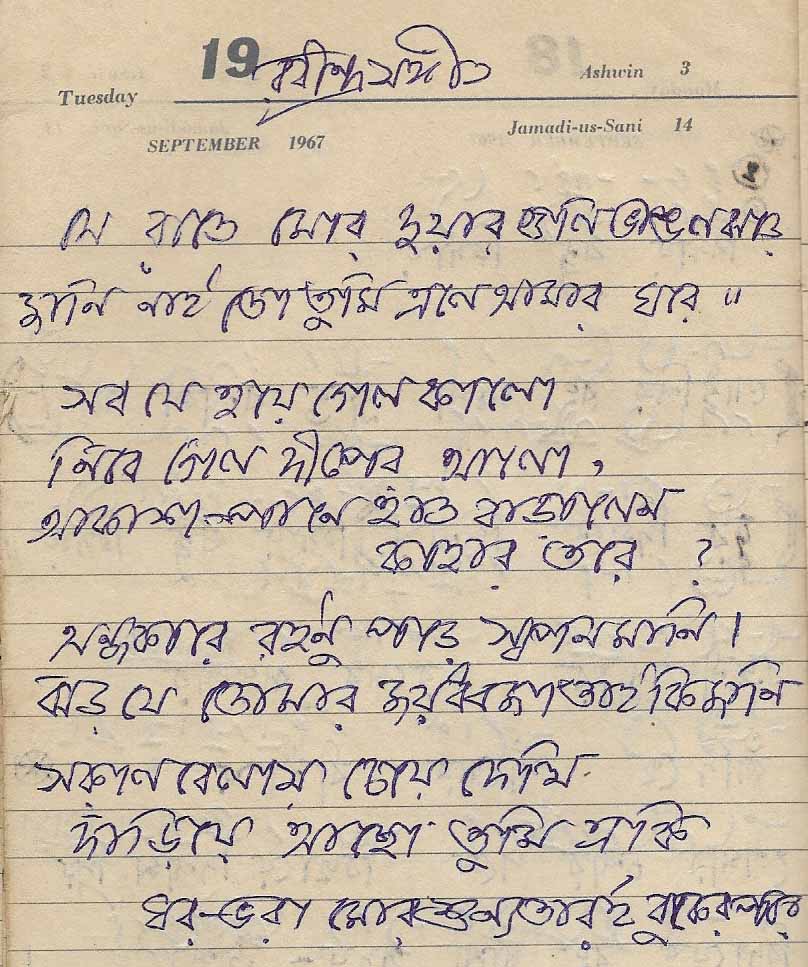 19 রবীন্দ্রসঙ্গীত Ashwin 3
Tuesday
SEPTEMBER 1967 Jamadi-us-Sani 14
যে রাতে মোর দুয়ারগুলি ভাঙল ঝড়ে
জানি নাই তো তুমি এলে আমার ঘরে ॥
সব যে হয়ে গেল কালো
নিবে গেল দীপের আলো,
আকাশ-পানে হাত বাড়ালেম
কাহার তরে ?
অন্ধকারে রইনু পড়ে স্বপন মানি।
ঝড় যে তোমার জয়ধ্বজা তাই কি জানি
সকাল বেলায় চেয়ে দেখি
দাঁড়িয়ে আছো তুমি একি
ঘর-ভরা মোর শূন্যতারই বুকের পরে